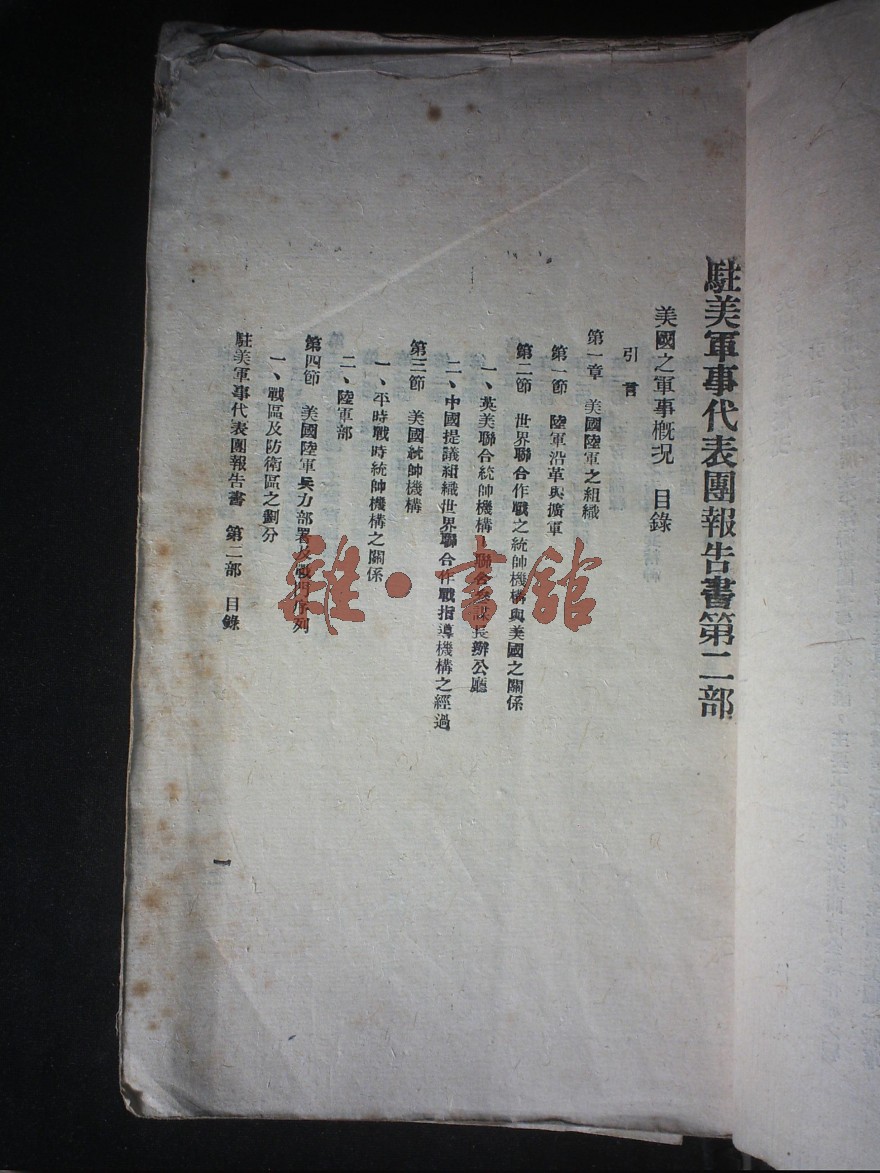 駐美軍事代表團報告書第二部
美國之軍事概况　目錄
引言
第一章　美國陸軍之組織
第一節　陸軍沿革與擴軍
第二節　世界聯合作戰之統帥機構與美國之關係
一、英美聯合統帥機構—聯合參謀長辦公廳
二、中國提議組織世界聯合作戰指導機構之經過
第三節　美國統帥機構
一、平時戰時統帥機構之關係
二、陸軍部
第四節　美國陸軍兵力部署及戰鬥序列
一、戰區及防衛區之劃分
駐美軍事代表團報告書　第二部　目錄
一
雜·書館